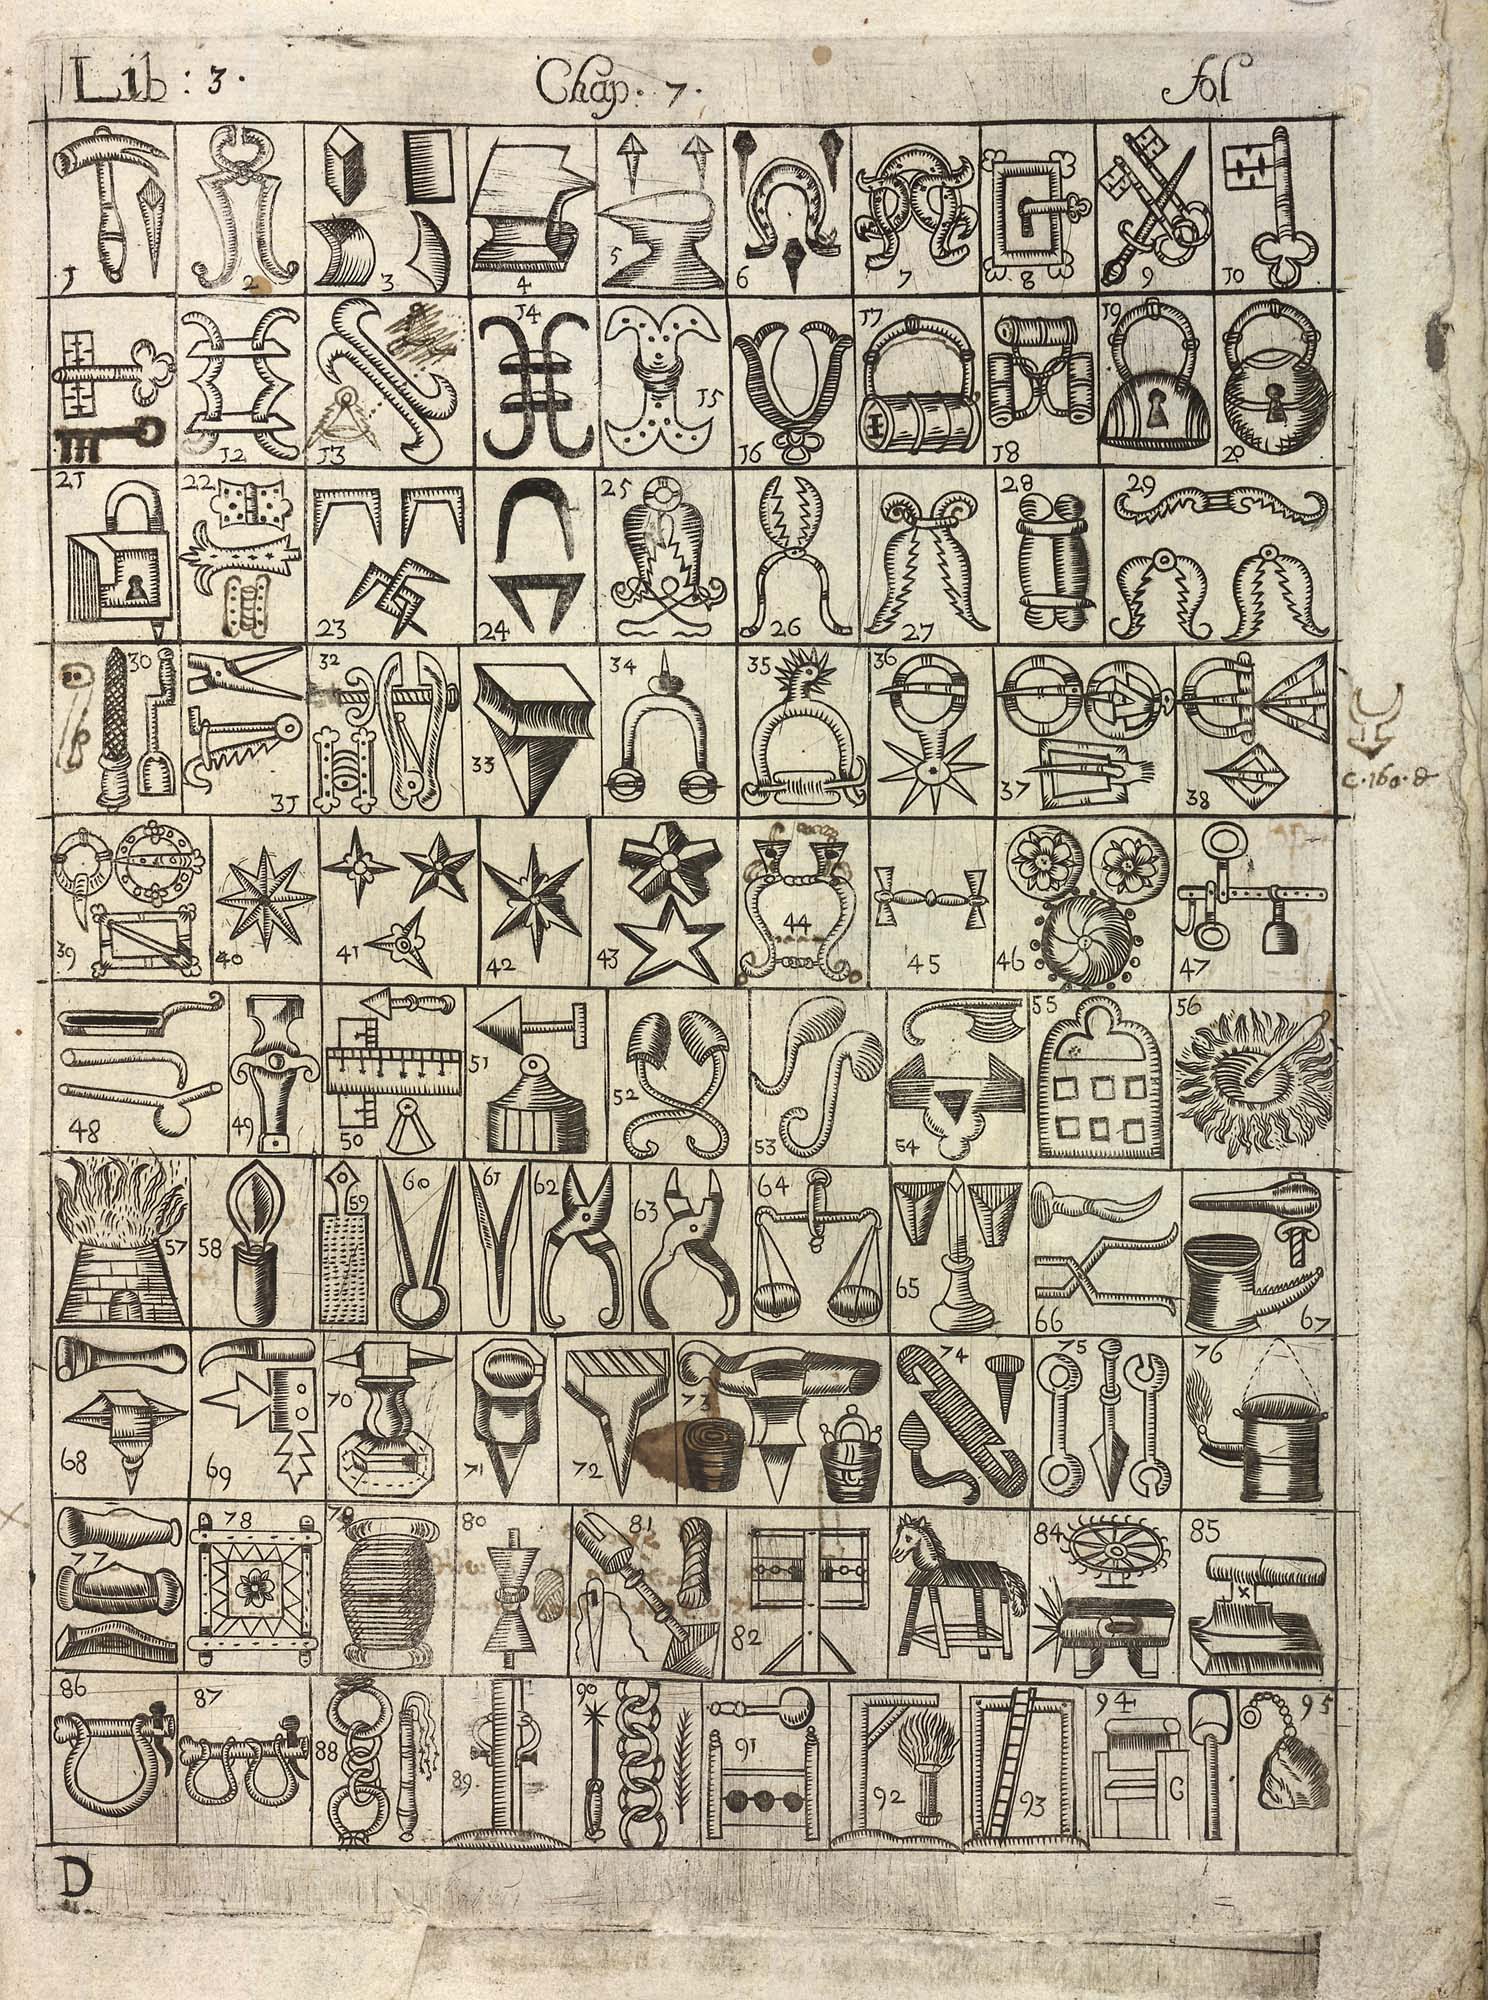 Lib : 3 . Chap . 7 . fol
J 2 3 4 5 6 7 8 9 J0
J2 J3 J4 J5 J6 J7 J8 J9 20
2J 22 23 24 25 26 27 28 29
30 3J 32 33 34 35 36 37 38
C . 160 . &
39 40 41 42 43 44 45 46 47
48 49 50 5J 52 53 54 55 56
57 58 59 60 6J 62 63 64 65 66 67
68 69 70 71 72 73 74 75 76
77 78 79 80 81 82 84 85
86 87 88 89 . 90 91 92 93 94 95
G
D